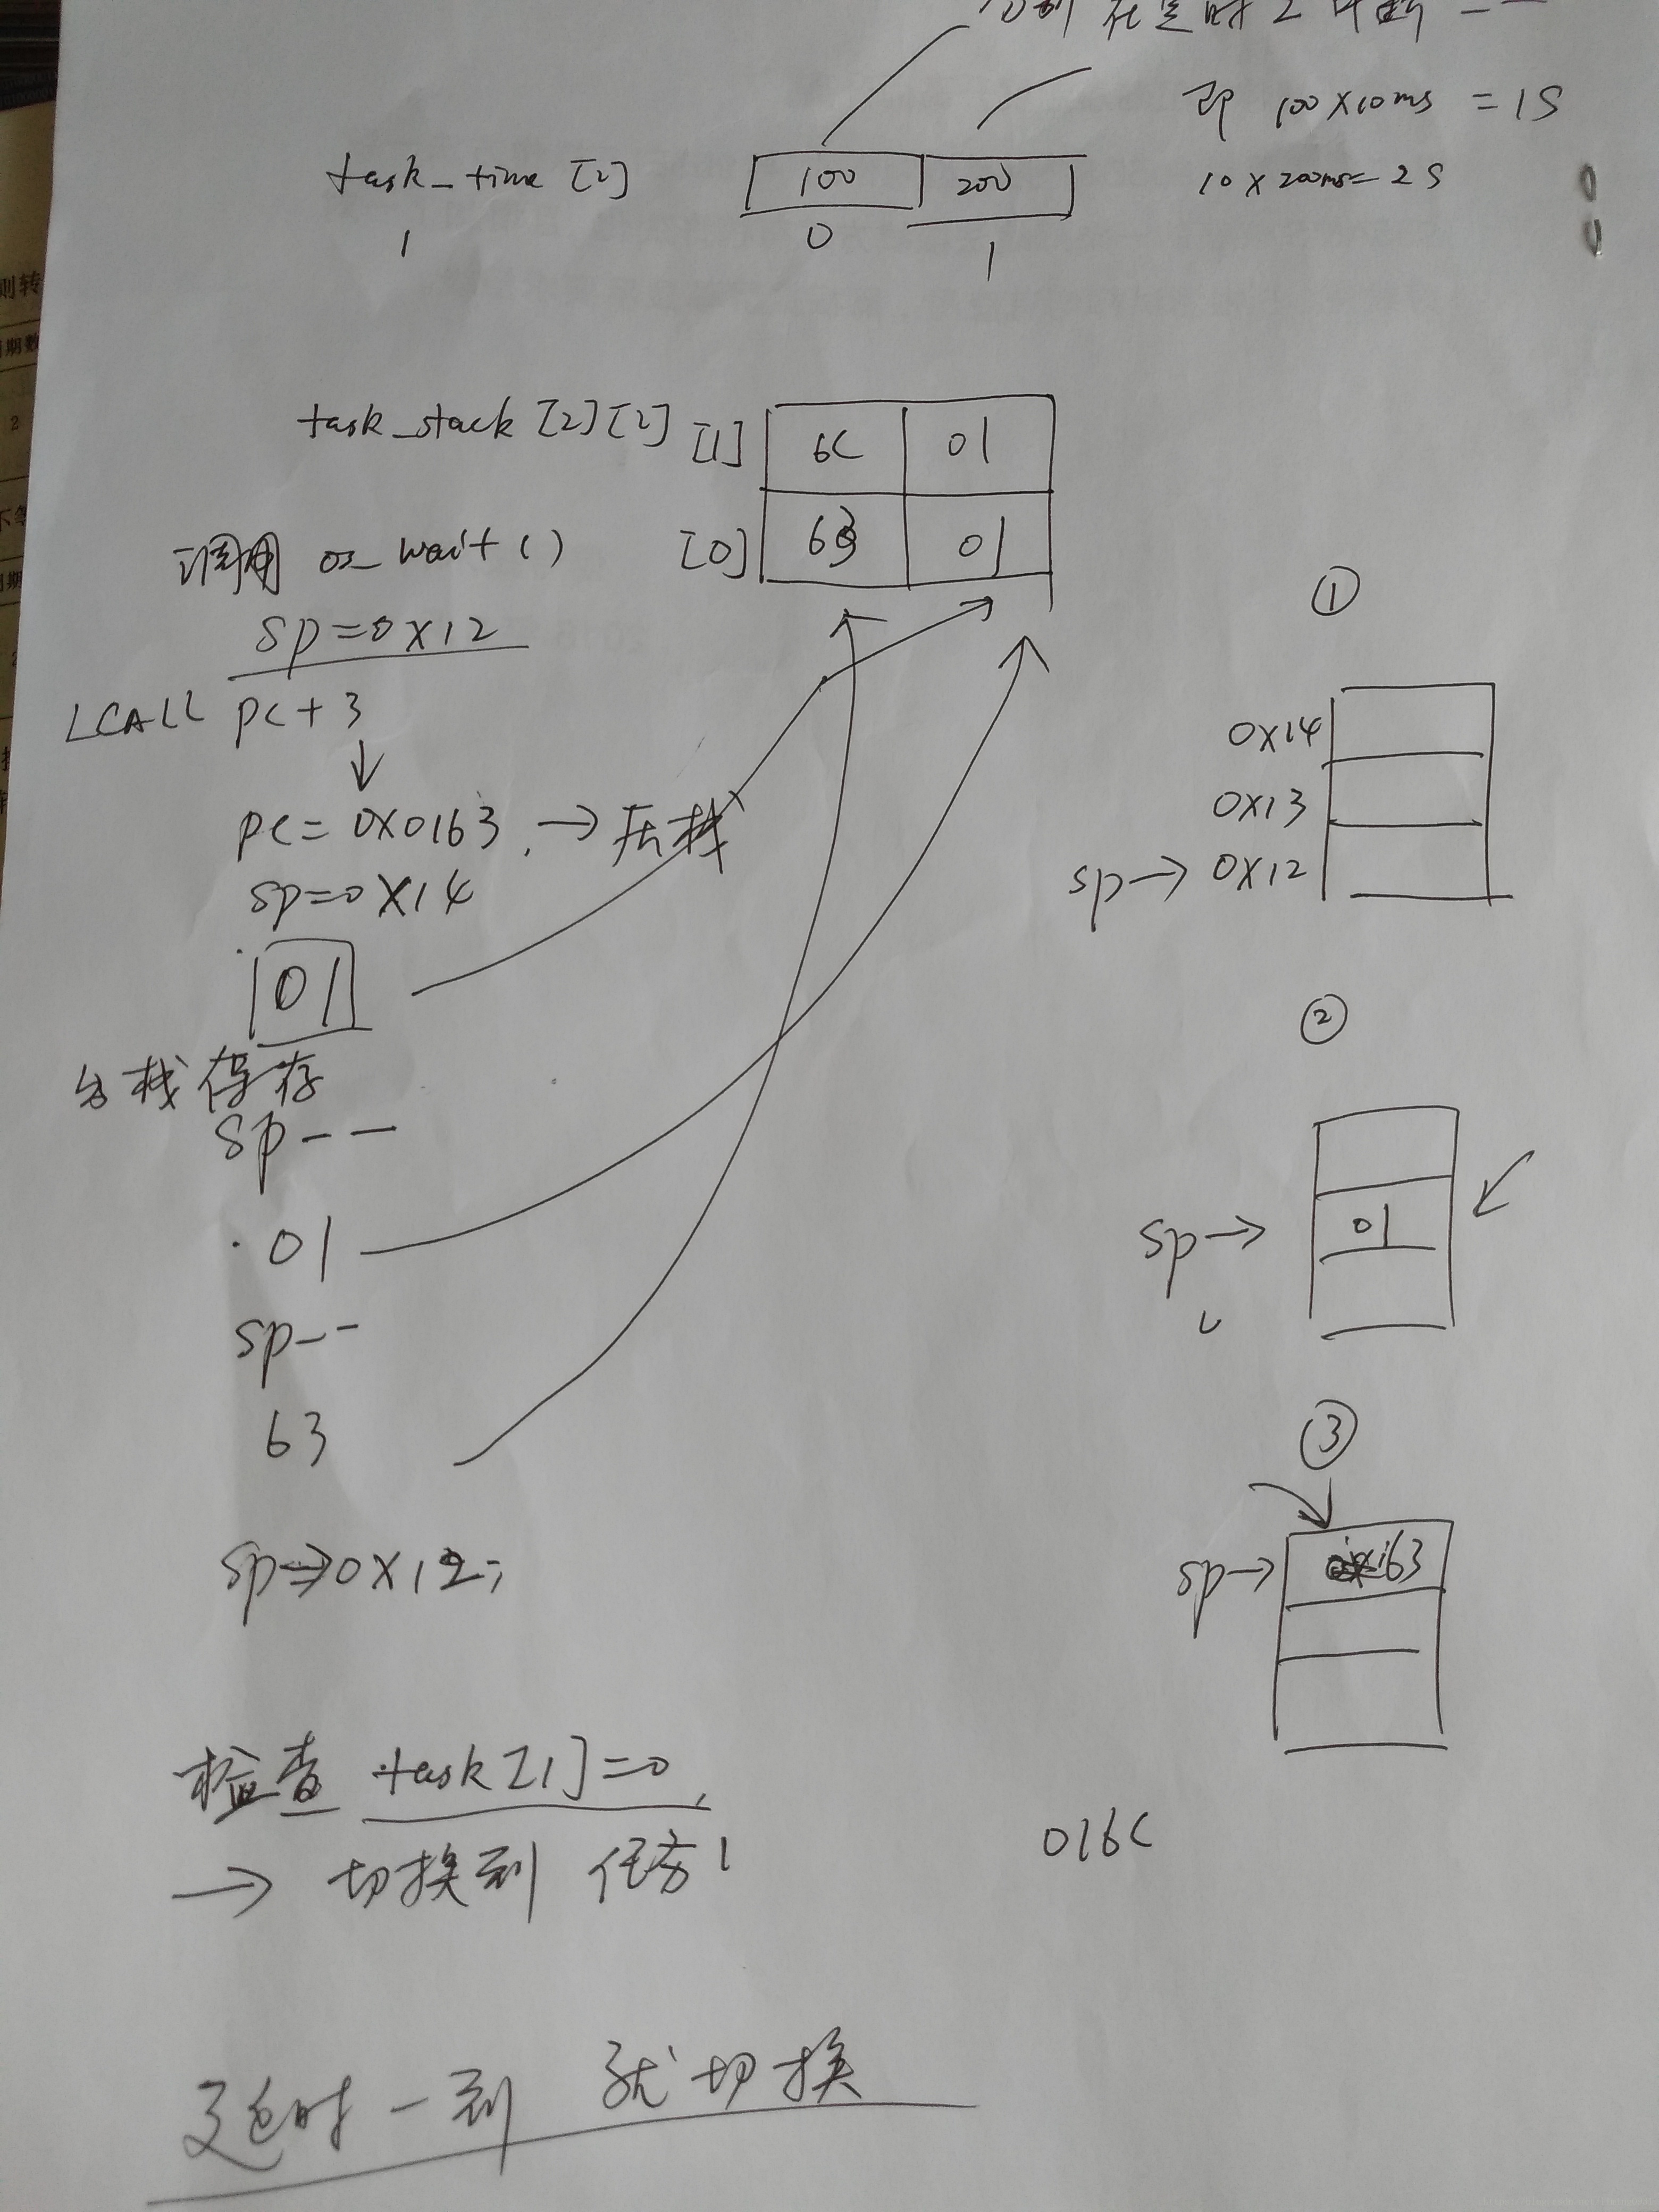 分别在定时2中断--
即 100×10ms = 1S
task_time [2] 100 200 10×200ms=2S
1 0 1
task_stack [2][2] [1] 6C 01
调用 os_wait () [0] 63 01
①
sp=0x12
LCALL pc+3
0x14
pc=0x0163 → 压栈
0x13
sp=0x14
sp→ 0x12
01
②
栈保存
sp--
01
sp→ 01
sp--
③
63
sp→ 63
sp=>0x12;
检查 task[1]=0,
016C
→ 切换到 任务1
延时一到 就切换
则转
期数
2
不等
期